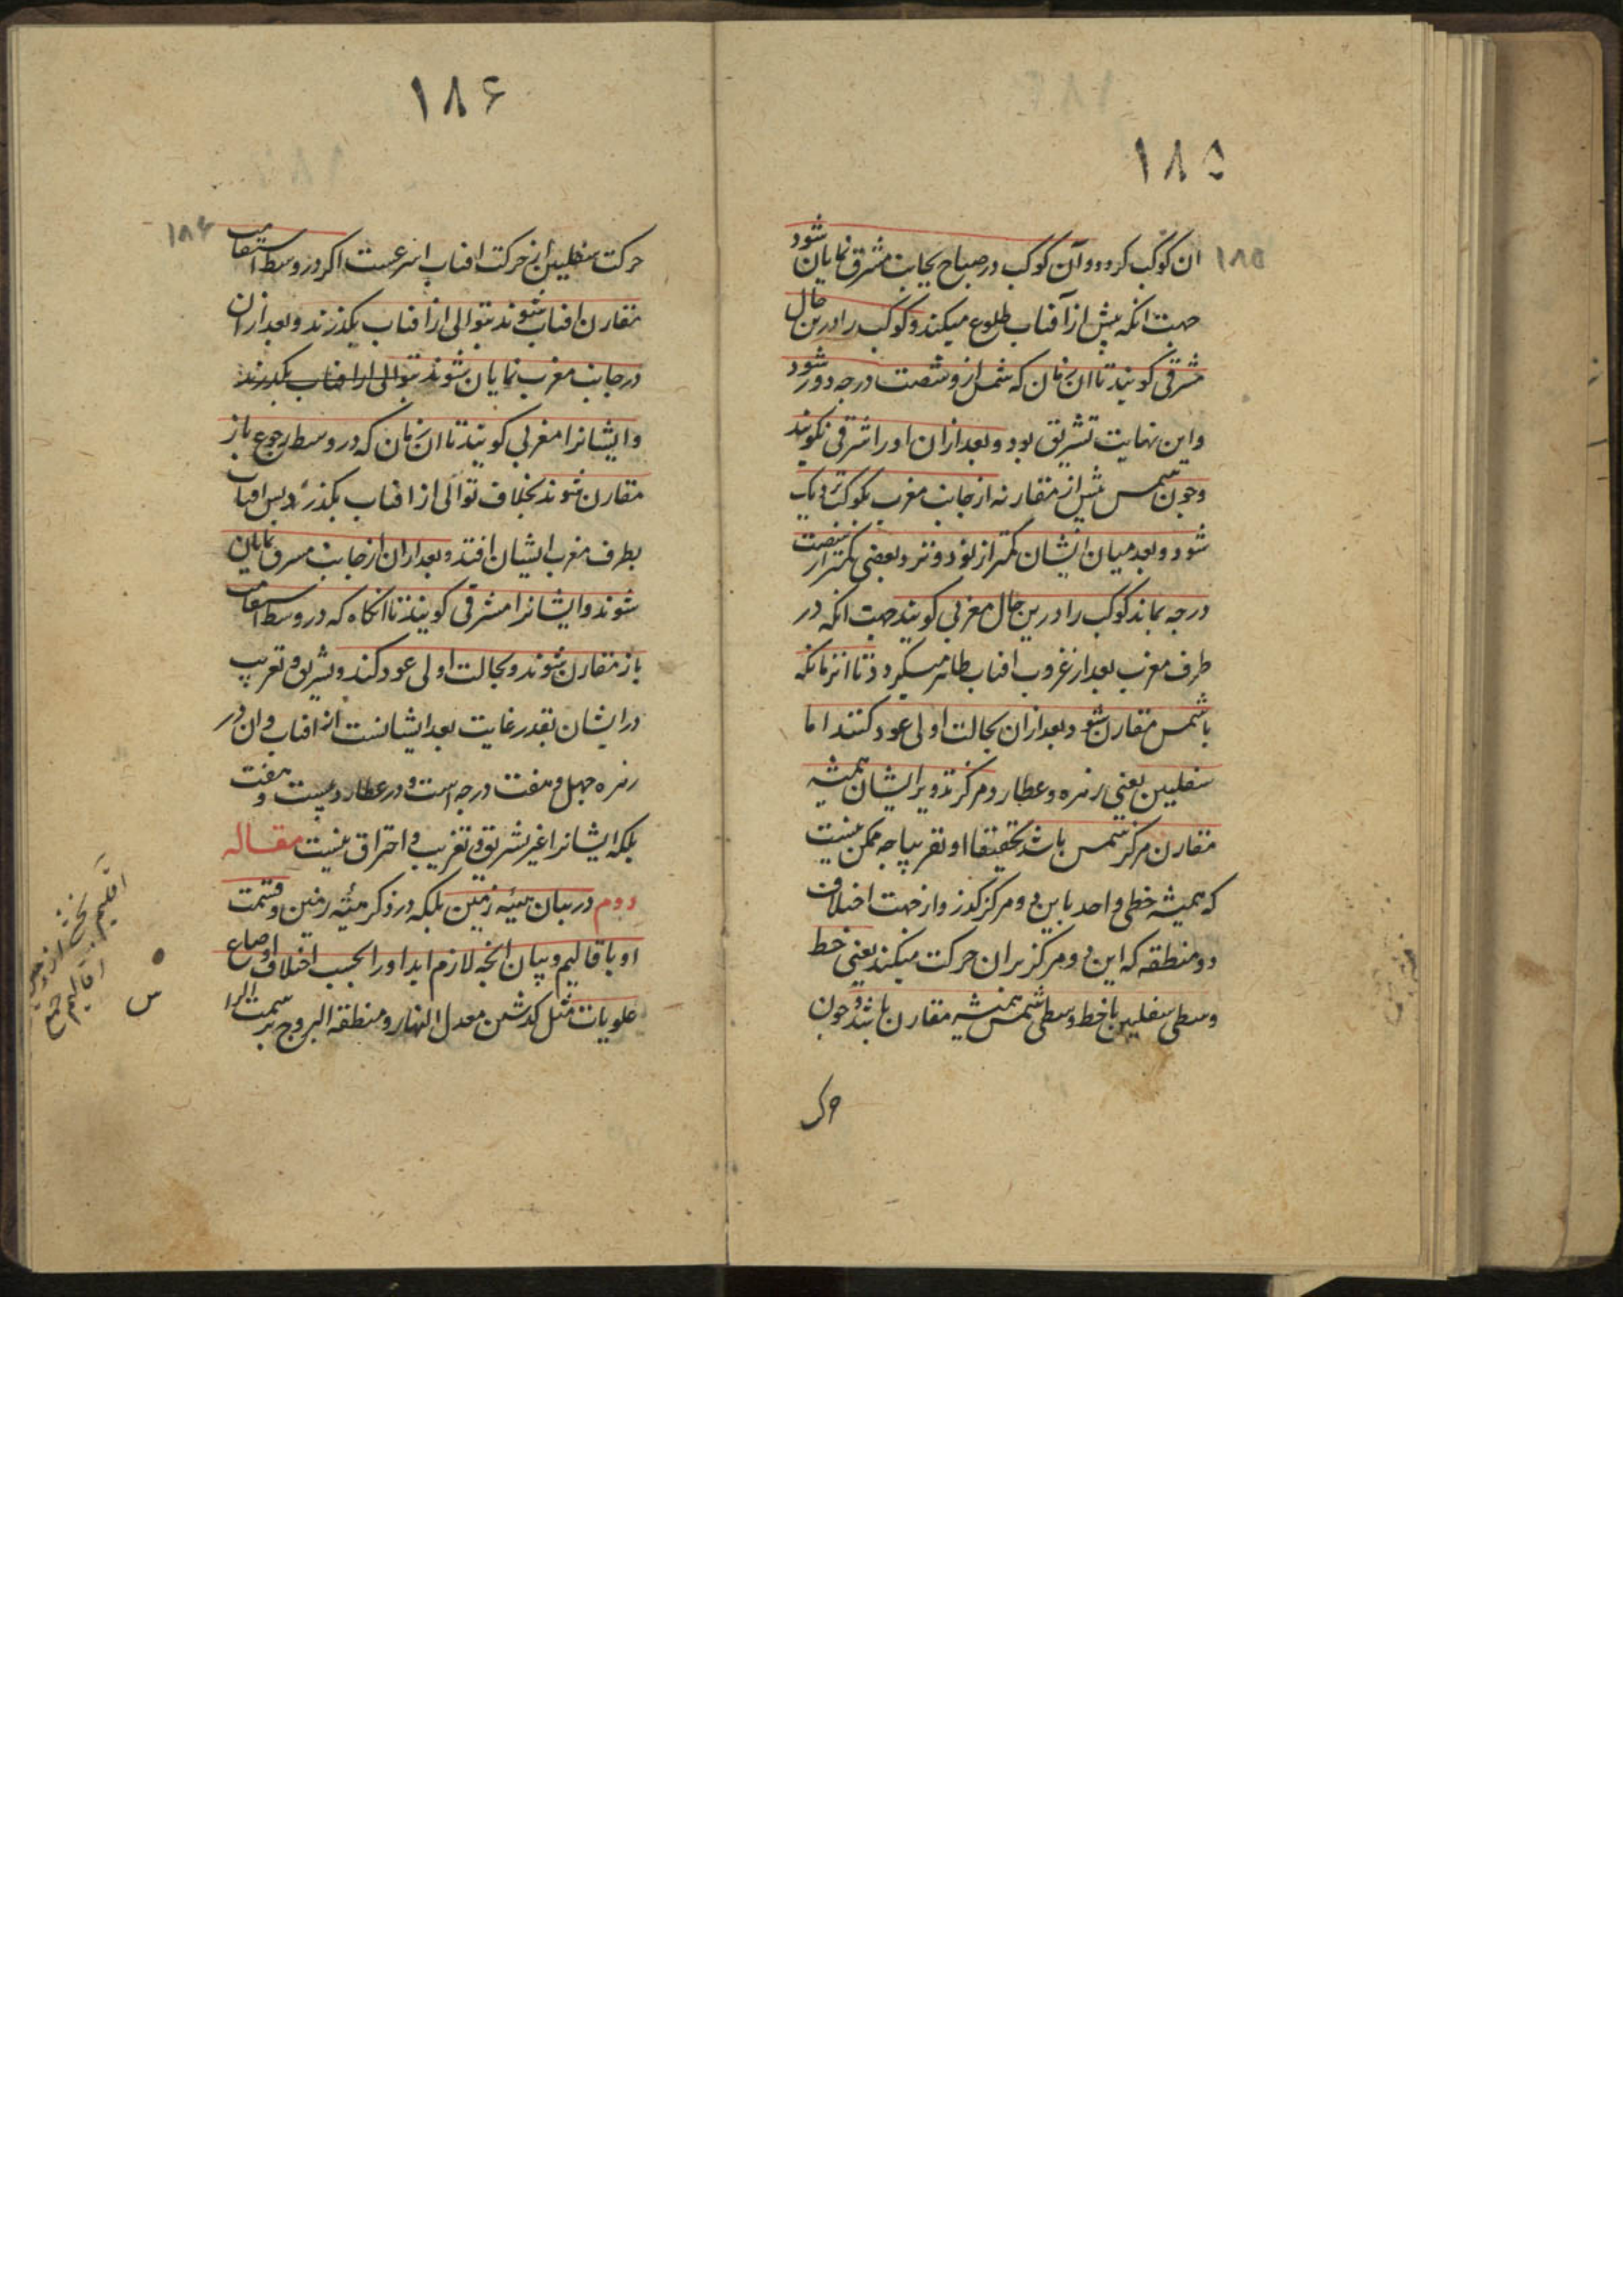 ۱۸۵
۱۸۵
ان کوکب کردد و آن کوکب در صباح بجانب مشرق نمایان شود
جهت انکه پیش از آفتاب طلوع میکند و کوکب را درین حال
مشرقی کویند تا ان زمان که شمس ازو شصت درجه دور شود
و این نهایت تشریق بود و بعد ازان او را شرقی نکویند
و چون شمس پیش از مقارنه از جانب مغرب بکوکب نزدیک
شود و بعد میان ایشان کمتر از نود و نزد بعضی کمتر از شصت
درجه بماند کوکب را درین حال مغربی کویند جهت انکه در
طرف مغرب بعد از غروب افتاب ظاهر میکردد تا انزمانکه
با شمس مقارن شود و بعد ازان بحالت اولی عود کنند اما
سفلیین یعنی زهره و عطارد مرکز تدویر ایشان همیشه
مقارن مرکز شمس باشد تحقیقا او تقریبا چه ممکن نیست
که همیشه خطی واحد باین دو مرکز کذرد از جهت اختلاف
دو منطقه که این دو مرکز بران حرکت میکند یعنی خط
وسطی سفلیین با خط وسطی شمس همیشه مقارن باشد و چون
حرک
۱۸۶
۱۸۶
حرکت سفلیین از حرکت افتاب اسرعست اکر در وسط استقامت
مقارن افتاب شوند بتوالی از افتاب بکذرند و بعد ازان
در جانب مغرب نمایان شوند بتوالی از افتاب بکذرند
و ایشانرا مغربی کویند تا ان زمان که در وسط رجوع باز
مقارن شوند بخلاف توالی از افتاب بکذرد پس افتاب
بطرف مغرب ایشان افتد و بعد ازان از جانب مشرق نمایان
شوند و ایشانرا مشرقی کویند تا انکاه که در وسط استقامت
باز مقارن شوند و بحالت اولی عود کند و تشریق و تغریب
در ایشان بقدر غایت بعد ایشانست از افتاب و ان در
زهره چهل و هفت درجه است و در عطارد بیست و هفت
بلکه ایشانرا غیر تشریق و تغریب و احتراق نیست مقاله
دوم در بیان هیئه زمین بلکه در ذکر هیئه زمین و قسمت
او باقالیم و بیان انچه لازم اید او را بحسب اختلاف اوضاع
علویات مثل کذشتن معدل النهار و منطقه البروج بر سمت الرا
س
اقلیم بخش از زمین
اقالیم جمع